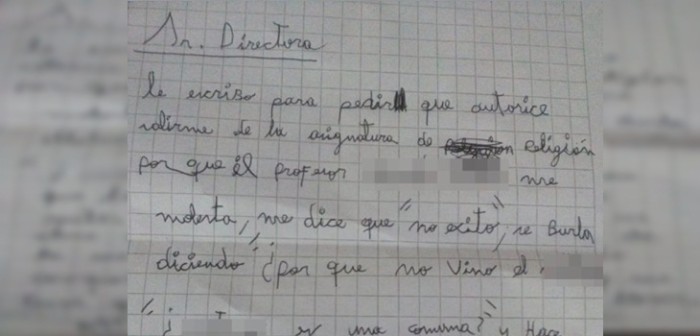 Sr. Directora
le escribo para pedir que autorice
salirme de la asignatura de religión
por que él profesor me
molesta, me dice que "no exito", se burla
diciendo "¿por que no vino el
"¿ es una comuna?" y Hace